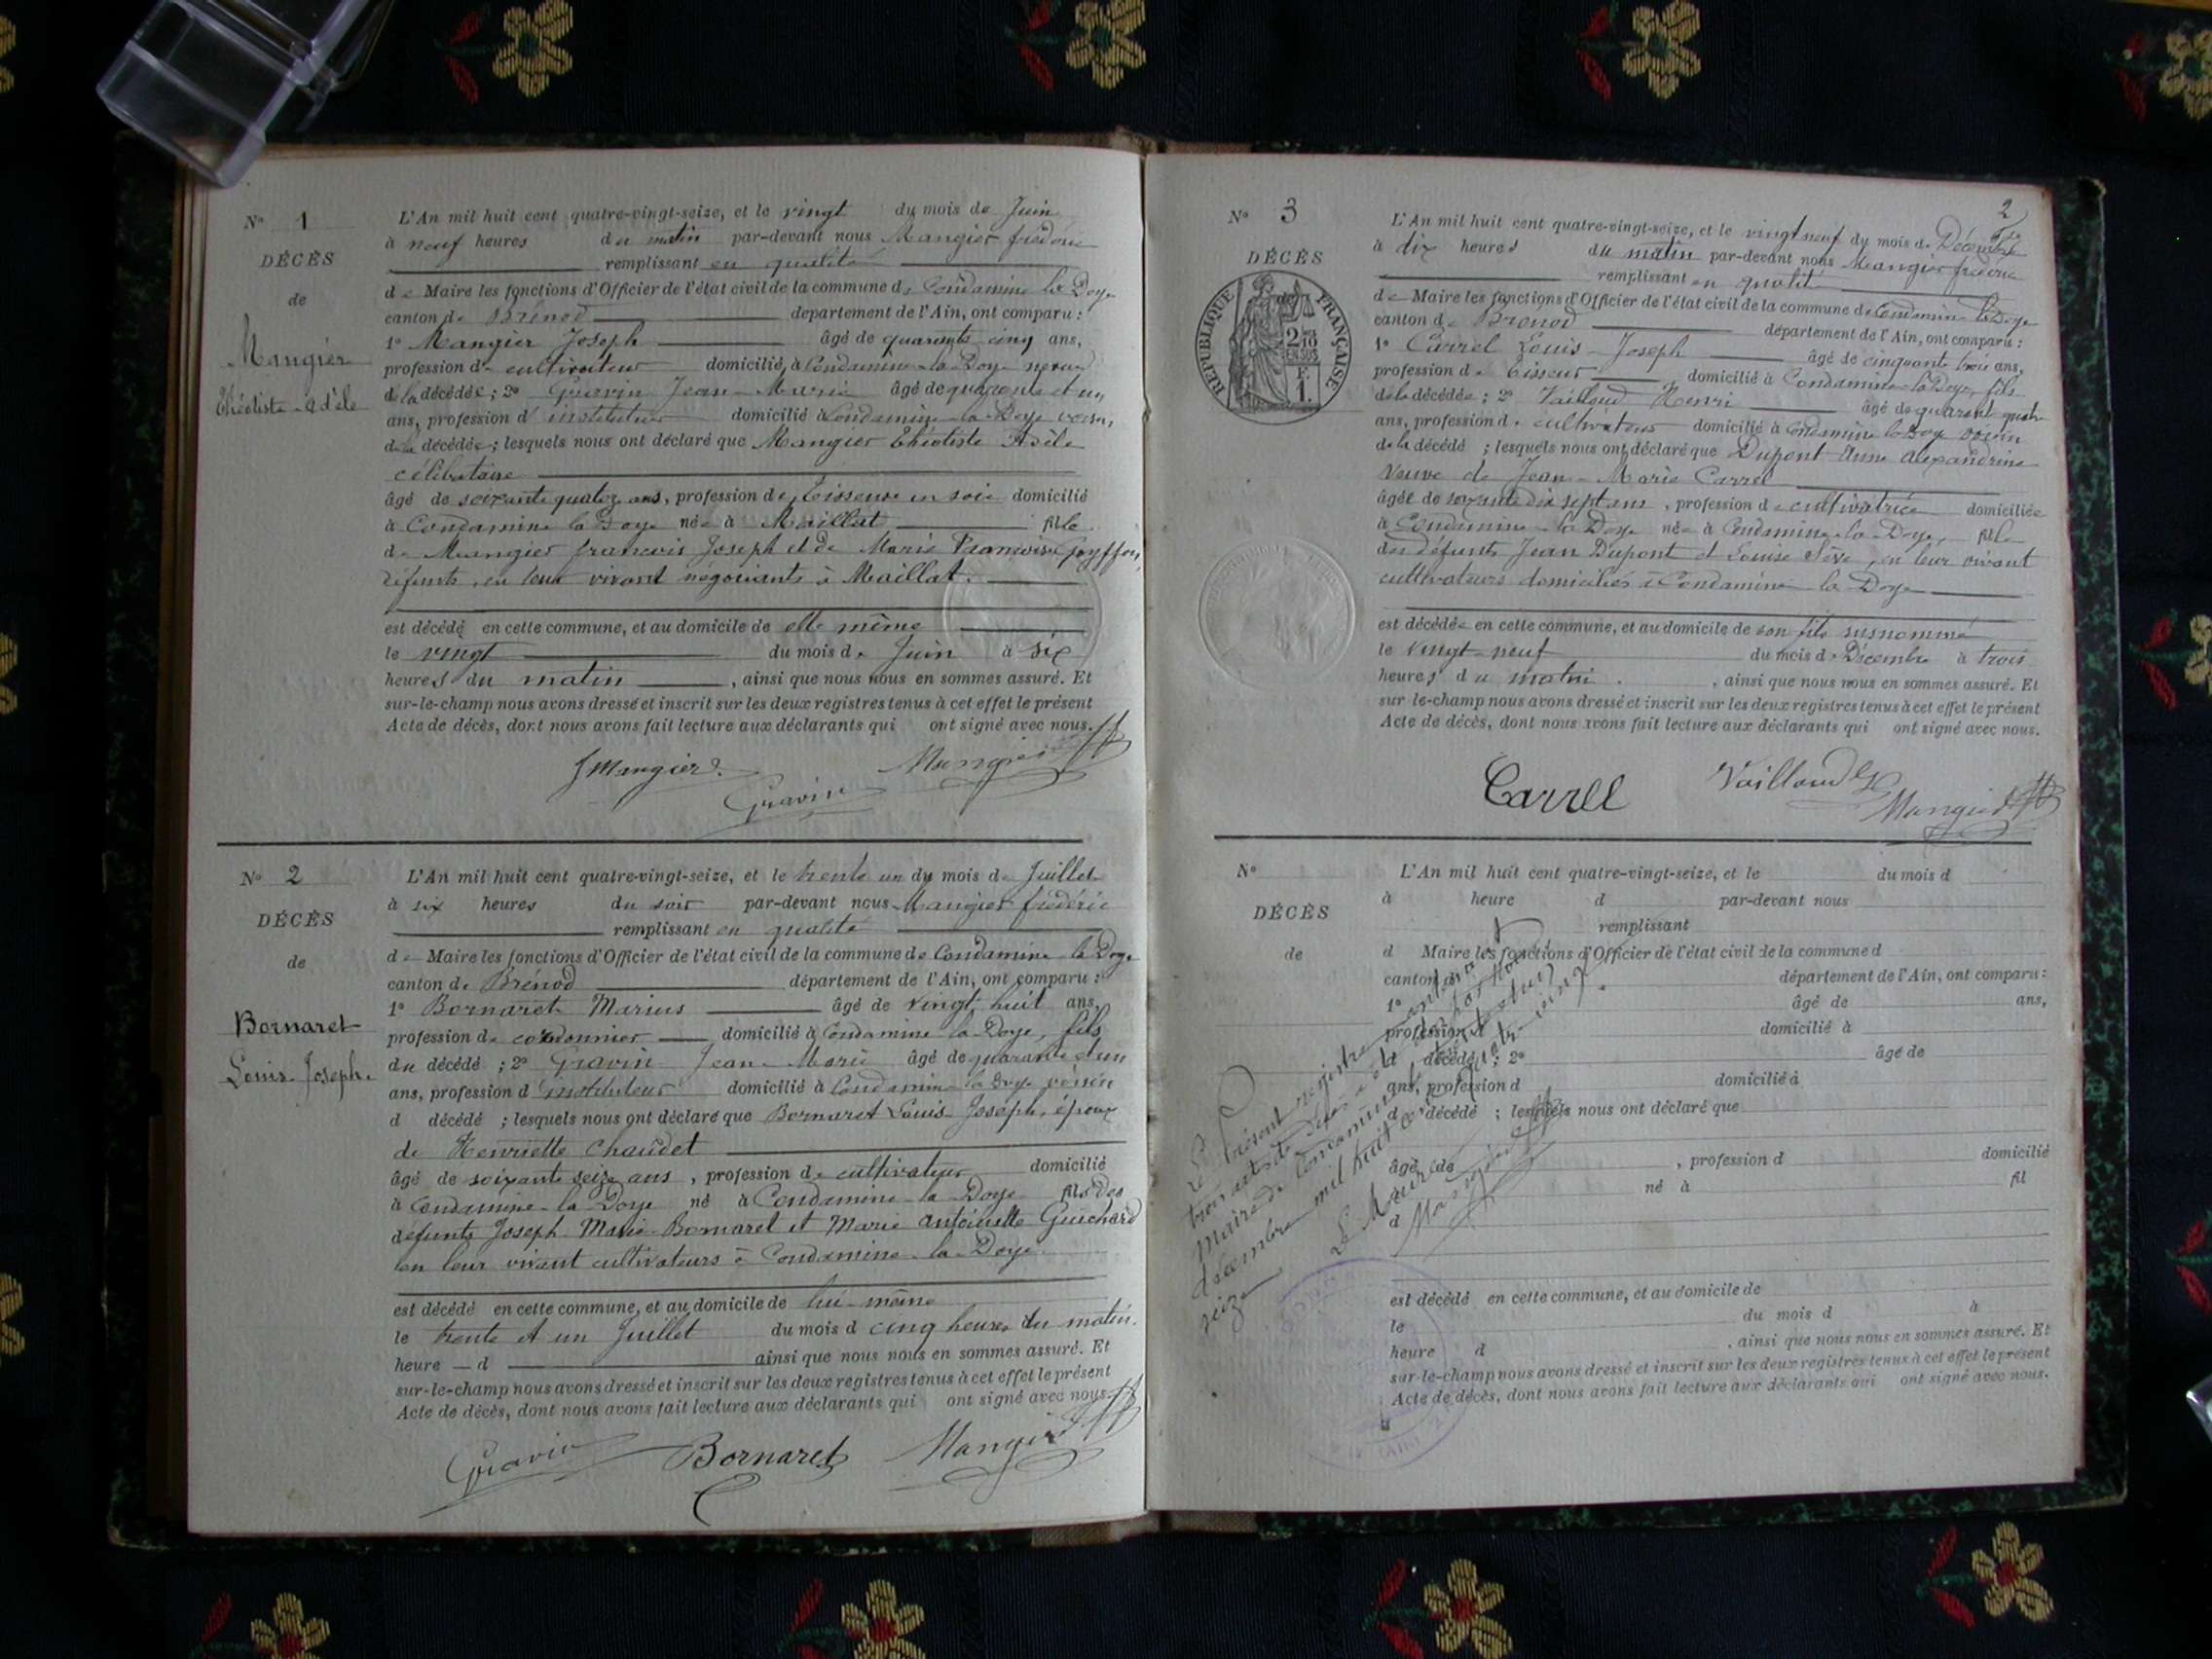 N° 1
DÉCÈS
de
Mangier
Théotiste-Adèle
L'An mil huit cent quatre-vingt-seize, et le vingt du mois de Juin
à neuf heures du matin par-devant nous Mangier frédéric
remplissant en qualité
de Maire les fonctions d'Officier de l'état civil de la commune de Condamine la Doye
canton de Brénod département de l'Ain, ont comparu :
1° Mangier Joseph âgé de quarante cinq ans,
profession de cultivateur domicilié à Condamine-la-Doye neveu
de la décédée ; 2° Gravin Jean-Marie âgé de quarante et un
ans, profession d'instituteur domicilié à Condamine-la-Doye voisin
de la décédée ; lesquels nous ont déclaré que Mangier Théotiste Adèle
célibataire
âgé de soixante quatorz ans, profession de Tisseuse en soie domicilié
à Condamine la Doye née à Maillat fille
de Mangier francois Joseph et de Marie Francoise Goyffon,
défunts, en leur vivant négociants à Maillat.
est décédé en cette commune, et au domicile de elle même
le vingt du mois de Juin à six
heures du matin , ainsi que nous nous en sommes assuré. Et
sur-le-champ nous avons dressé et inscrit sur les deux registres tenus à cet effet le présent
Acte de décès, dont nous avons fait lecture aux déclarants qui ont signé avec nous.
J Mangier
Gravin
Mangier
N° 2
DÉCÈS
de
Bornaret
Louis-Joseph
L'An mil huit cent quatre-vingt-seize, et le trente un du mois de Juillet
à six heures du soir par-devant nous Mangier frédéric
remplissant en qualité
de Maire les fonctions d'Officier de l'état civil de la commune de Condamine la Doye
canton de Brénod département de l'Ain, ont comparu :
1° Bornaret Marius âgé de vingt huit ans,
profession de cordonnier domicilié à Condamine-la-Doye, fils
du décédé ; 2° Gravin Jean-Marie âgé de quarante et un
ans, profession d'instituteur domicilié à Condamine la Doye voisin
d décédé ; lesquels nous ont déclaré que Bornaret Louis Joseph, époux
de Henriette Chaudet
âgé de soixante seize ans , profession de cultivateur domicilié
à Condamine-la Doye né à Condamine-la-Doye fils des
défunts Joseph Marie Bornaret et Marie Antoinette Guichard
en leur vivant cultivateurs à Condamine-la-Doye
est décédé en cette commune, et au domicile de lui-même
le trente et un Juillet du mois d cinq heures du matin.
heure d ainsi que nous nous en sommes assuré. Et
sur-le-champ nous avons dressé et inscrit sur les deux registres tenus à cet effet le présent
Acte de décès, dont nous avons fait lecture aux déclarants qui ont signé avec nous.
Gravin
Bornaret
Mangier
2
N° 3
DÉCÈS
de
RÉPUBLIQUE FRANÇAISE
2/10 EN SUS
F. 1.
L'An mil huit cent quatre-vingt-seize, et le vingt neuf du mois de Décembre
à dix heures du matin par-devant nous Mangier frédéric
remplissant en qualité
de Maire les fonctions d'Officier de l'état civil de la commune de Condamine la Doye
canton de Brénod département de l'Ain, ont comparu :
1° Carrel Louis-Joseph âgé de cinquante trois ans,
profession de Tisseur domicilié à Condamine-la Doye, fils
de la décédée ; 2° Vailloud Henri âgé de quarante quatre
ans, profession de cultivateur domicilié à Condamine la Doye voisin
de la décédé ; lesquels nous ont déclaré que Dupont Anne Alexandrine
Veuve de Jean-Marie Carrel
âgée de soixante dix sept ans , profession de cultivatrice domiciliée
à Condamine-la-Doye née à Condamine-la-Doye, fille
des défunts Jean Dupont et Louise Sève, en leur vivant
cultivateurs domiciliés à Condamine-la-Doye
est décédée en cette commune, et au domicile de son fils susnommé
le vingt-neuf du mois de Décembre à trois
heures du matin , ainsi que nous nous en sommes assuré. Et
sur-le-champ nous avons dressé et inscrit sur les deux registres tenus à cet effet le présent
Acte de décès, dont nous avons fait lecture aux déclarants qui ont signé avec nous.
Carrel
Vailloud
Mangier
N°
DÉCÈS
de
L'An mil huit cent quatre-vingt-seize, et le du mois d
à heure d par-devant nous
remplissant
d Maire les fonctions d'Officier de l'état civil de la commune d
canton de département de l'Ain, ont comparu :
1° âgé de ans,
profession d domicilié à
d décédé ; 2° âgé de
ans, profession d domicilié à
d décédé ; lesquels nous ont déclaré que
âgé de , profession d domicilié
né à fil
d
est décédé en cette commune, et au domicile de
le du mois d à
heure d , ainsi que nous nous en sommes assuré. Et
sur-le-champ nous avons dressé et inscrit sur les deux registres tenus à cet effet le présent
Acte de décès, dont nous avons fait lecture aux déclarants qui ont signé avec nous.
Le présent registre contenant
trois actes de décès a été
maire de Condamine
décembre mil huit cent quatre-vingt
seize
Le Maire
Mangier